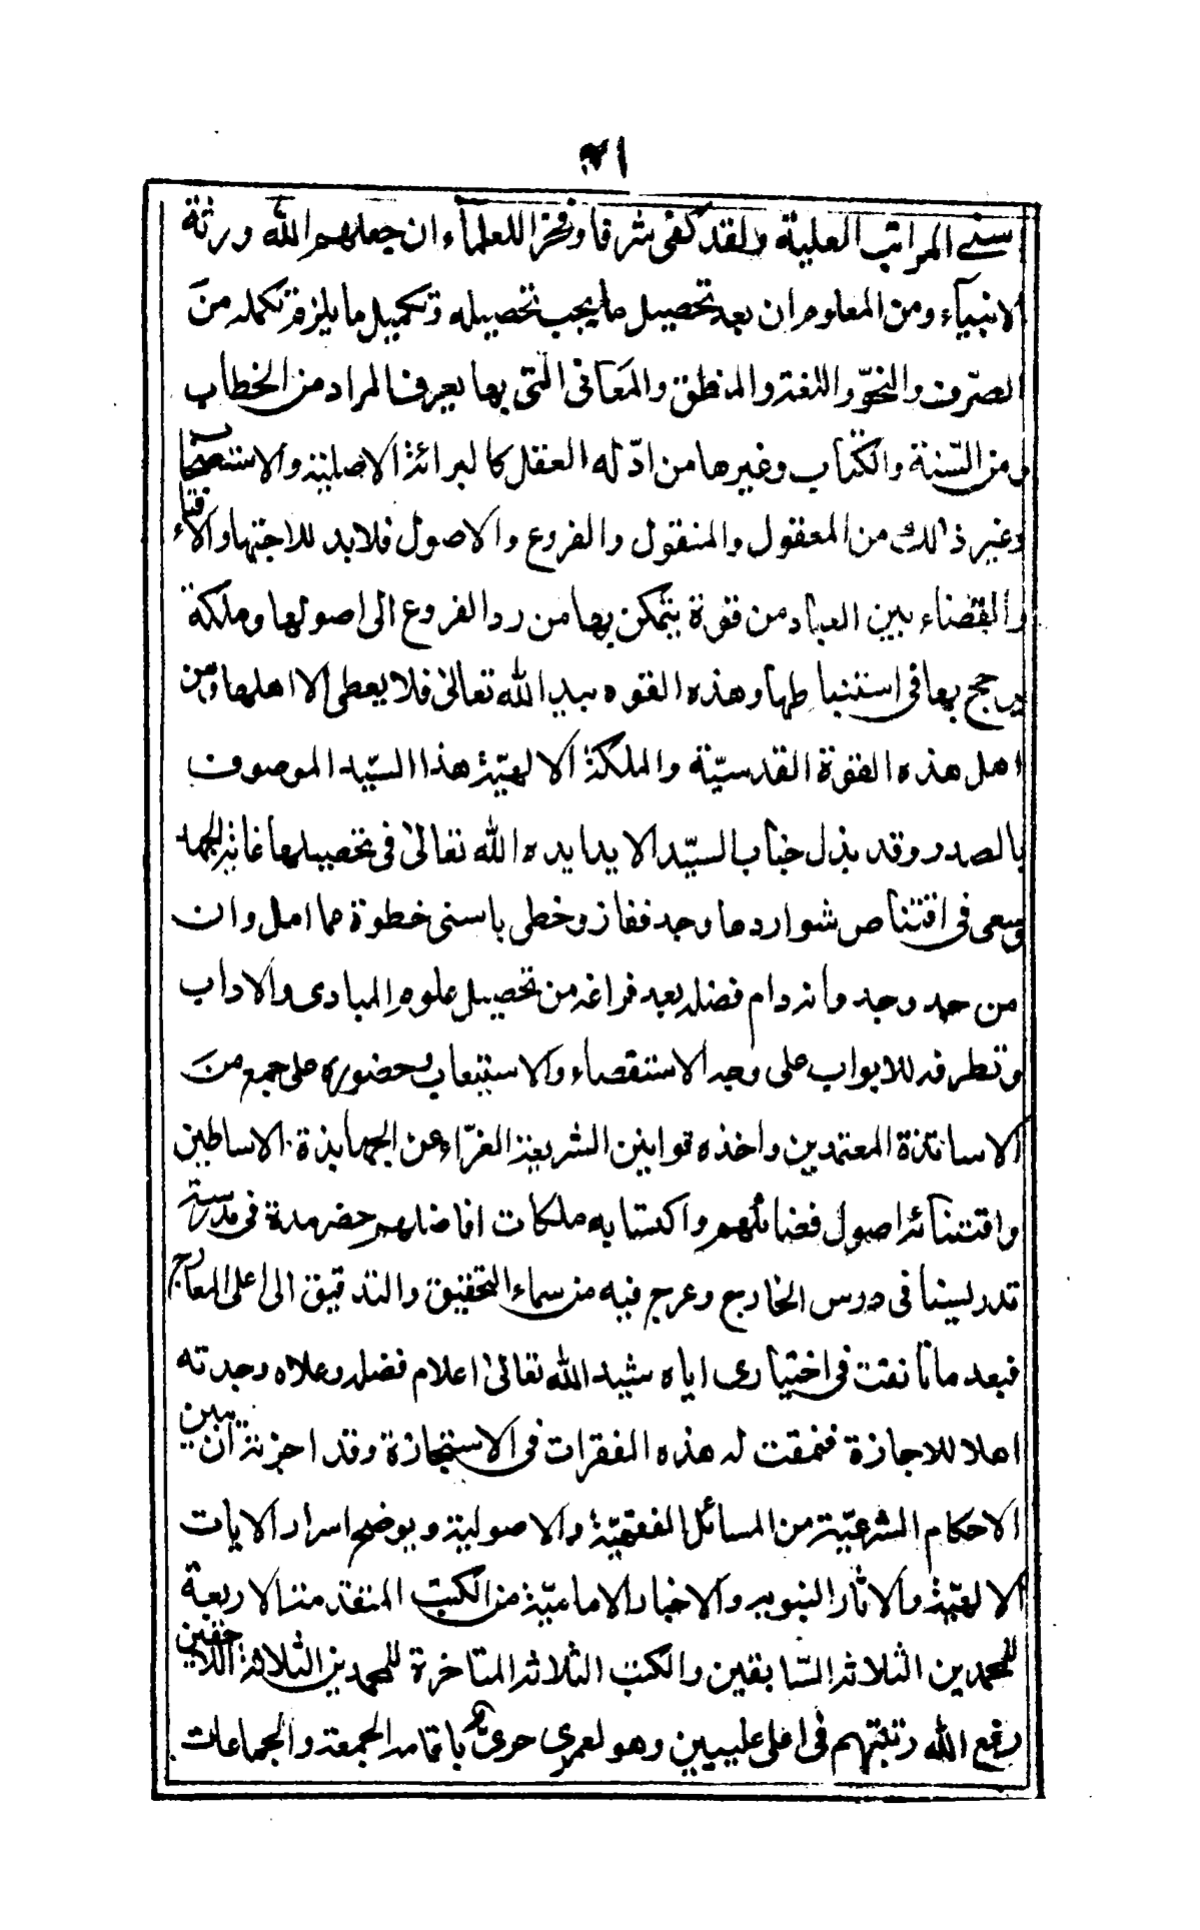 اسنى المراتب العلية ولقد كفى شرفا وفخرا للعلماء ان جعلهم الله ورثة
الانبياء ومن المعلوم ان بعد تحصيل ما يجب تحصيله وتكميل ما يلزم تكمله من
الصرف والنحو واللغة والمنطق والمعانى التى بها يعرف المراد من الخطاب
ومن السّنة والكتاب وغيرها من ادّله العقل كالبرائة الاصلية والاستصحاب
وغير ذالك من المعقول والمنقول والفروع والاصول فلابد للاجتهاد والافتاء
والقضاء بين العباد من قوة يتمكن بها من رد الفروع الى اصولها وملكة
يرجح بها فى استنباطها وهذه القوه بيد الله تعالى فلا يعطى الا اهلها ومن
اهل هذه القوة القدسيّة والملكة الالهيّة هذا السيّد الموصوف
بالصدر وقد بذل جناب السيّد الايد ايده الله تعالى فى تحصيلها غاية الجهد
وسعى فى اقتناص شواردها وجد ففاز وخطى باسنى خطوة مما امل وان
من جد وجد وانه دام فضله بعد فراغه من تحصيل علوم المبادى والاداب
وتطرقه للابواب على وجه الاستقصاء والاستيعاب وحضوره على جمع من
الاساتذة المعتمدين واخذه قوانين الشريعة الغرّاء عن الجهابذة الاساطين
واقتنائه اصول فضائلهم واكتسابه ملكات افاضلهم حضر مدة فى مدرسة
تدريسنا فى درس الخارج وعرج فيه من سماء التحقيق والتدقيق الى اعلى المعارج
فبعد ما تانقت فى اختيارى اياه شيد الله تعالى اعلام فضله وعلاه وجدته
اهلا للاجازة فنمقت له هذه الفقرات فى الاستجازة وقد اجزته ان يبين
الاحكام الشرعيّة من المسائل الفقهيّة والاصولية ويوضح اسرار الايات
الالهيّة والاثار النبويه والاخبار الاماميّة من الكتب المتقدمة الاربعة
للمحمدين الثلاثة السّابقين والكتب الثلاثة المتاخرة للمحمدين الثلاثة اللاحقين
رفع الله رتبتهم فى اعلى عليين وهو لعمرى حرى باقامة الجمعة والجماعات